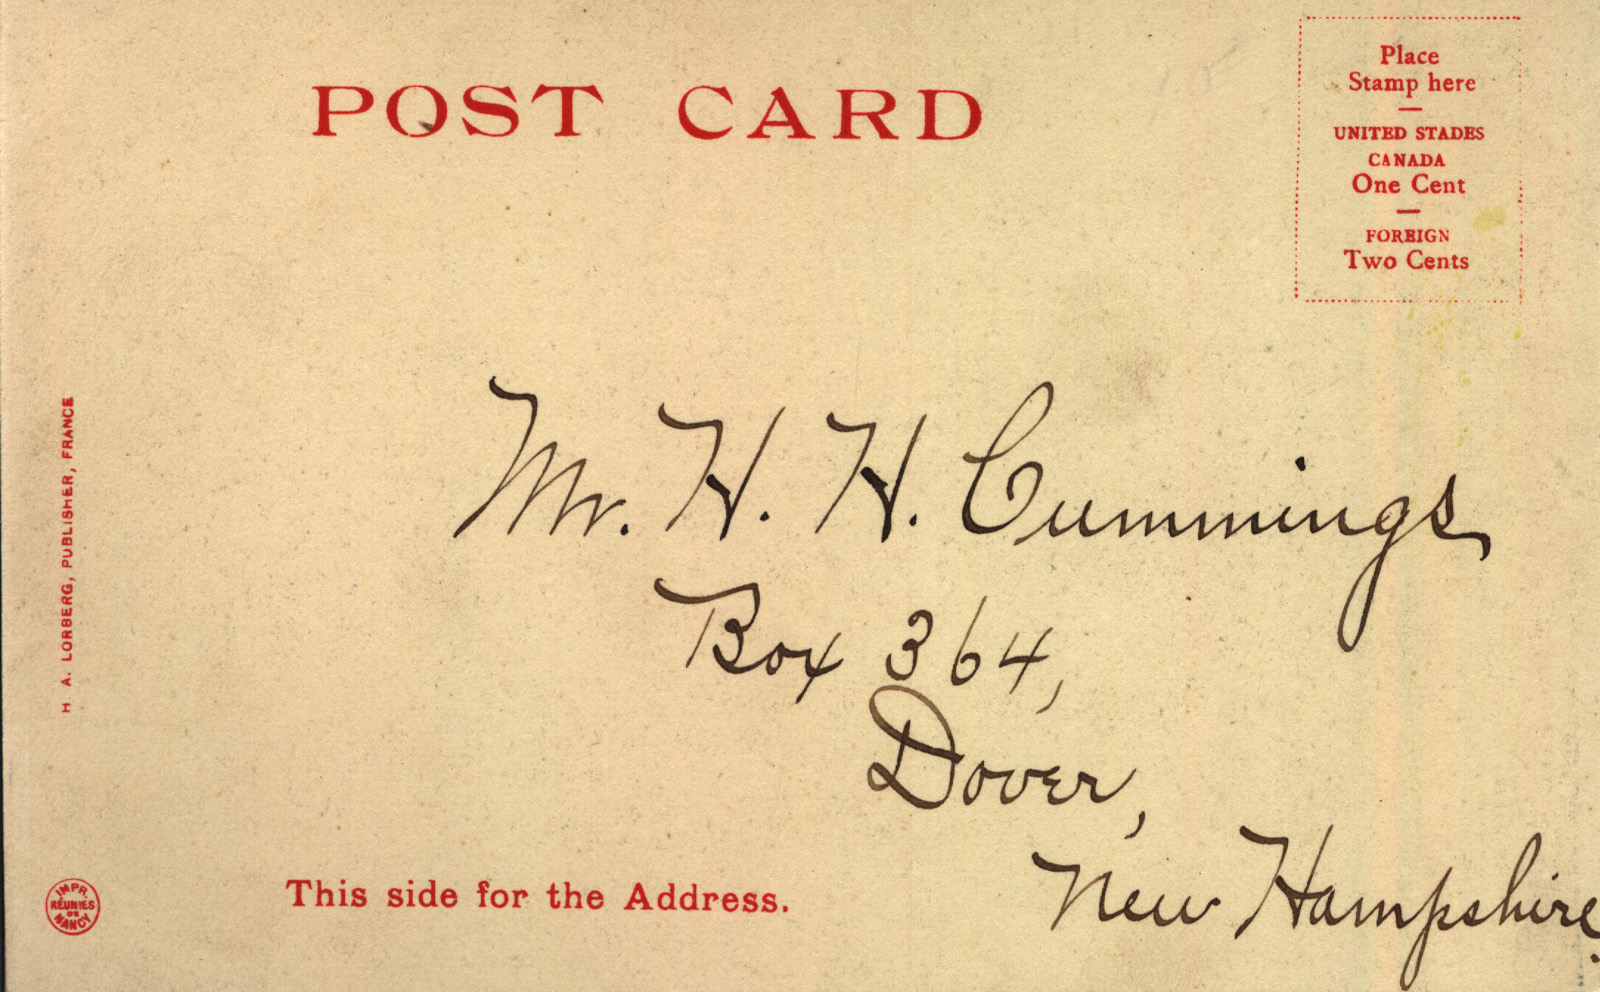 POST CARD
Place
Stamp here
UNITED STADES
CANADA
One Cent
FOREIGN
Two Cents
Mr. H. H. Cummings
Box 364,
Dover,
New Hampshire.
This side for the Address.
H A. LORBERG, PUBLISHER, FRANCE
IMPR.
RÉUNIES
DE
NANCY